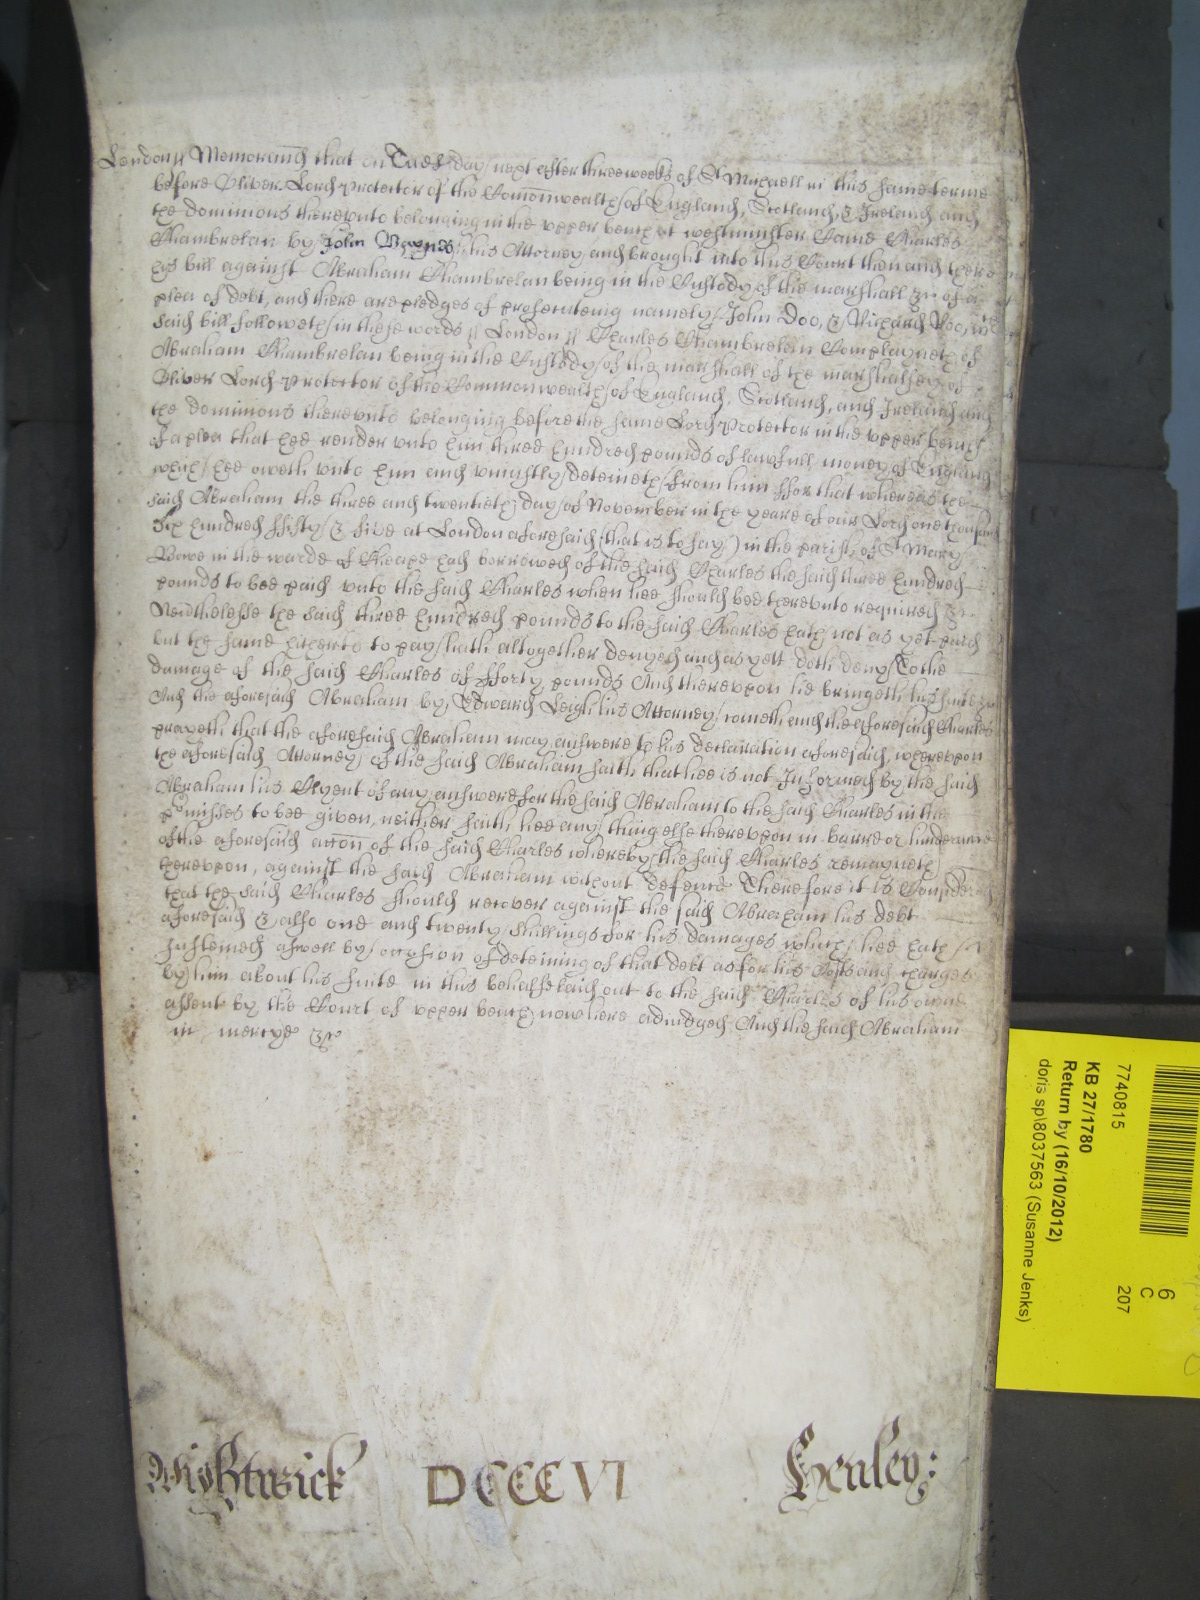 London ss Memorand that on Tuesday next after three weekes of St Michaell in this same terme
before Oliver Lord Protector of the Comonwealth of England, Scotland, & Ireland and
the dominions therevnto belonging in the vpper bench at westminster Came Charles
Chambrelan by John his Attorney and brought into this Court then and there
his bill against Abraham Chambrelan being in the Custody of the marshall &c of a
plea of debt, and there are pledges of prosecuteing namely John Doo, & Richard Roo, wch
said bill followeth in these words ss London ss Charles Chambrelan Complayneth of
Abraham Chambrelan being in the Custody of the marshall of the marshalsey of
Oliver Lord Protector of the Commonwealth of England, Scotland, and Ireland and
the dominions therevnto belonging before the same Lord Protector in the vpper bench
of a plea that hee render vnto him three hundred pounds of lawfull money of England
which hee oweth vnto him and vniustly deteineth from him ffor that whereas the
said Abraham the three and twentieth day of November in the yeare of our Lord one thousand
six hundred ffifty & five at London aforesaid (that is to say) in the parish of St Mary
Bowe in the warde of Cheape had borrowed of the said Charles the said three hundred
pounds to bee paid vnto the said Charles when hee should bee therevnto required &c
Neuthelesse the said three hundred pounds to the said Charles hath not as yet paid
but the same hitherto to pay hath altogether denyed and as yett doth deny To the
damage of the said Charles of fforty pounds And therevpon he bringeth his suite &c
And the aforesaid Abraham by Edward Leigh his Attorney cometh and the aforesaid Charles
prayeth that the aforesaid Abraham may answere to his declaration aforesaid, wherevpon
the aforesaid Attorney of the said Abraham saith that hee is not Informed by the said
Abraham his Clyent of any answere for the said Abraham to the said Charles in the
pmisses to bee given, neither saith hee any thing else therevpon in barre or hinderance
of the aforesaid accon of the said Charles whereby the said Charles remayneth
therevpon, against the said Abraham without defence Therefore it is Considered
that the said Charles should recover against the said Abraham his debt
aforesaid & also one and twenty shillings for his damages which hee hath
susteined aswell by occasion of deteining of that debt as for his Costs and charges
by him about his suite in this behalfe laid out to the said Charles of his owne
assent by the Court of vpper bench now here adiudged And the said Abraham
in mercye &c
Wightwick DCCCCVI Henley:
7740815
KB 27/1780
Return by (16/10/2012)
doris sp\8037563 (Susanne Jenks)
6
C
207